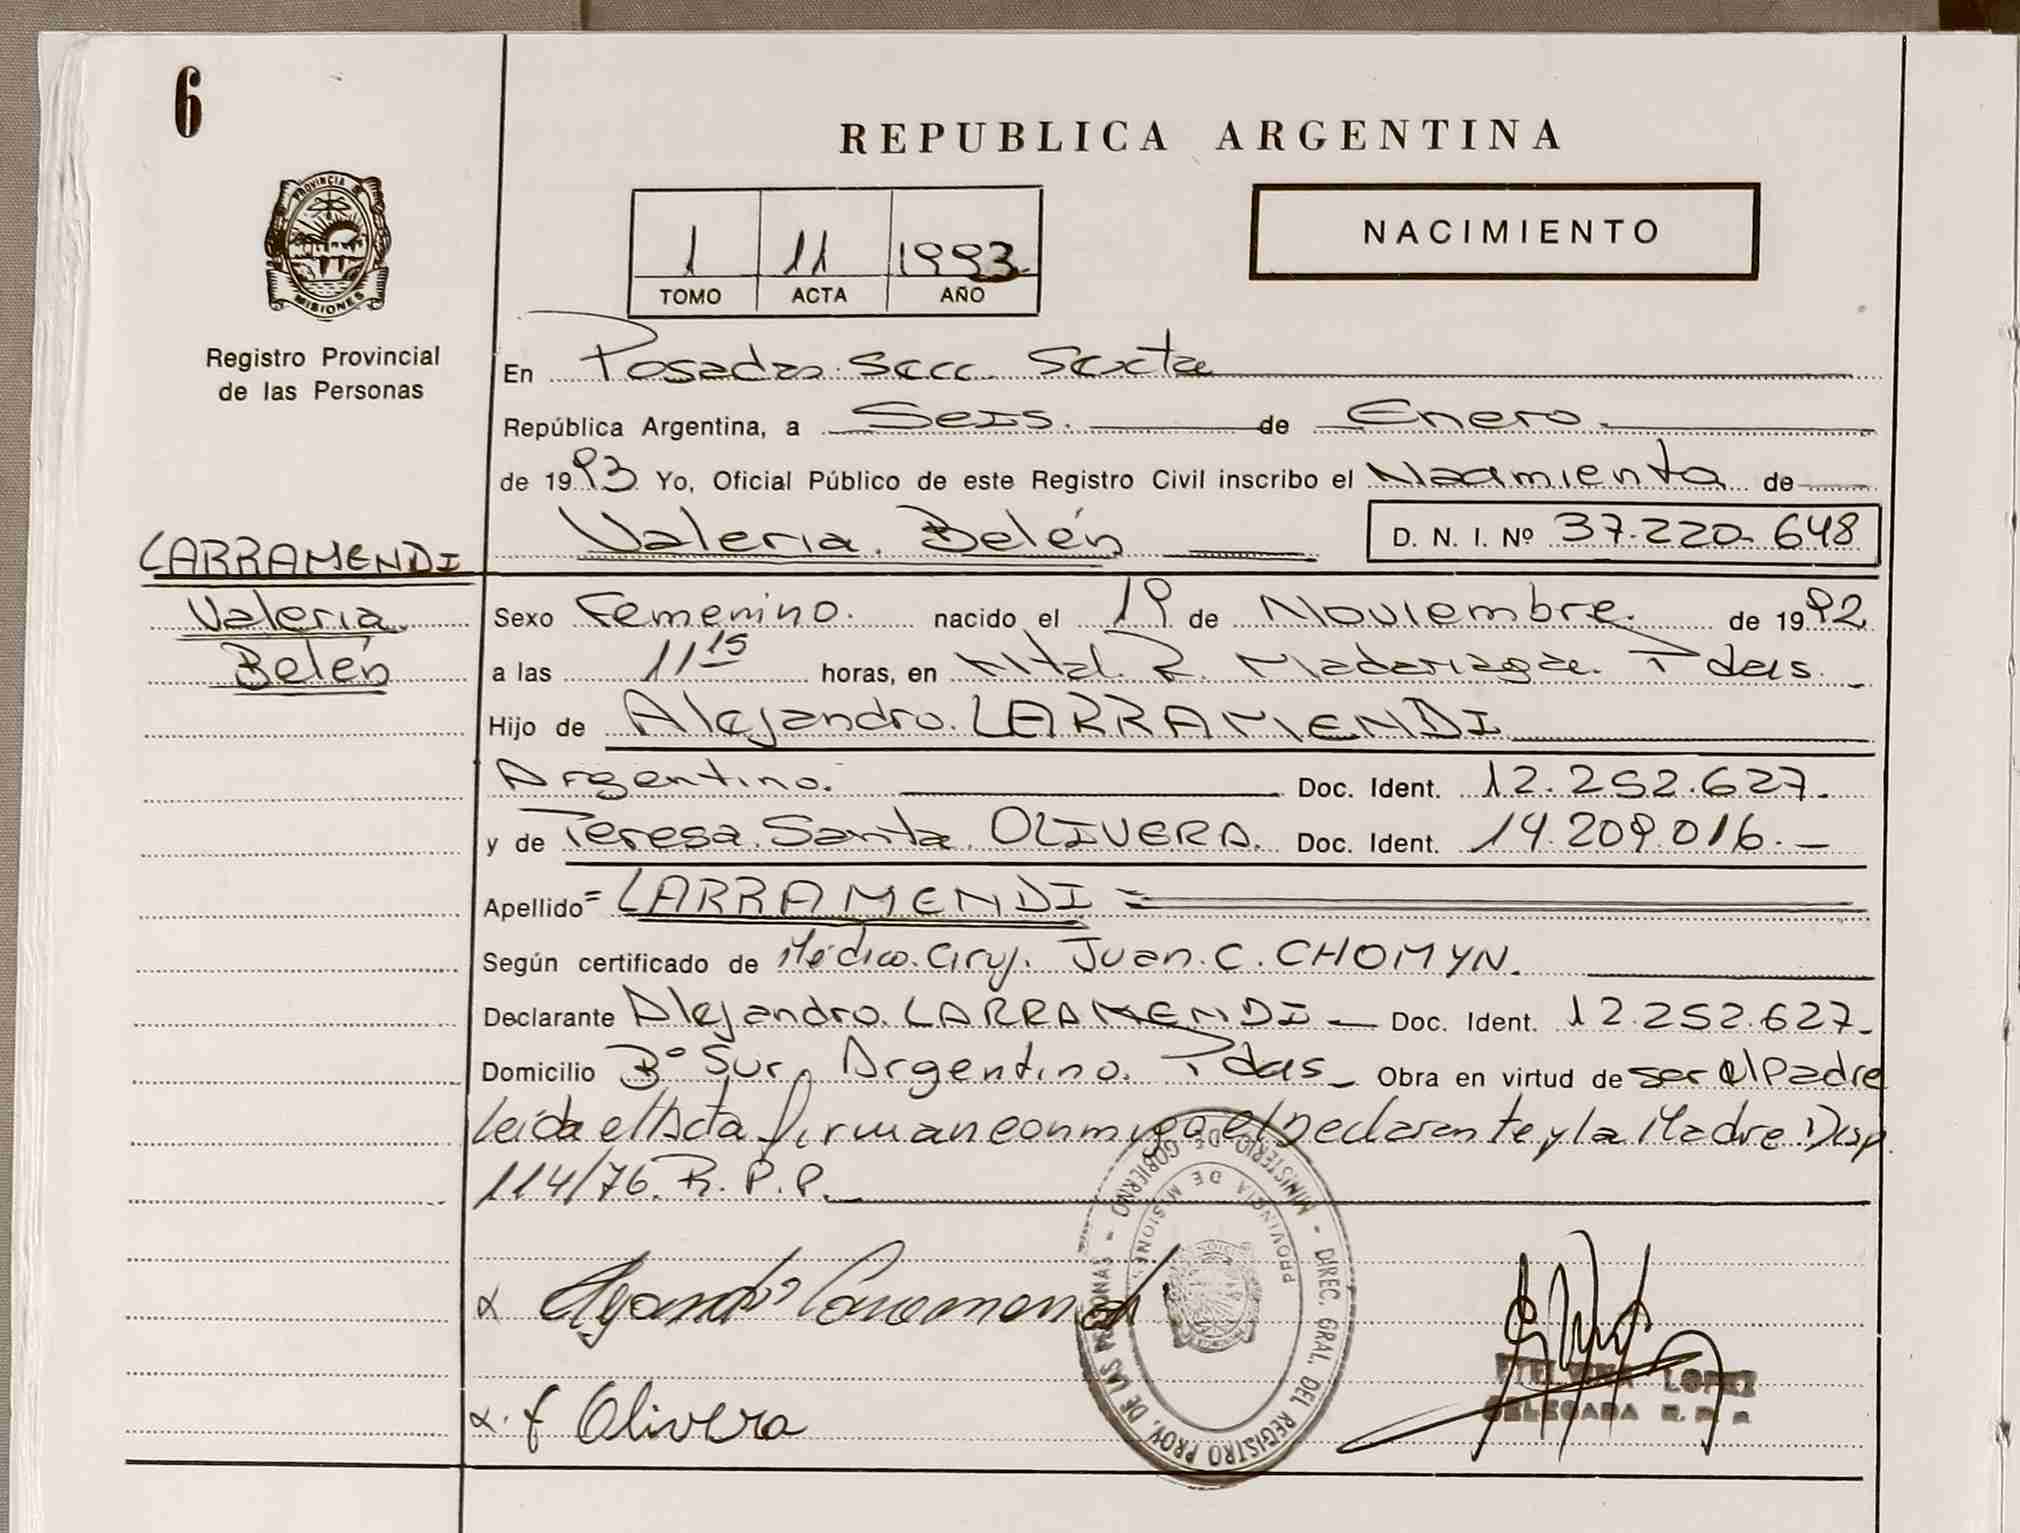 6
REPUBLICA ARGENTINA
PROVINCIA DE
MISIONES
Registro Provincial
de las Personas
1 11 1993
TOMO ACTA AÑO
NACIMIENTO
En Posadas Secc. Sexta
República Argentina, a Seis. de Enero.
de 1993 Yo, Oficial Público de este Registro Civil inscribo el Nacimiento de
Valeria Belén D. N. I. Nº 37.220.648
LARRAMENDI
Valeria
Belén
Sexo Femenino. nacido el 19 de Noviembre de 1992
a las 11 15 horas, en R. Madariaga. Pdas.
Hijo de Alejandro LARRAMENDI
Argentino. Doc. Ident. 12.252.627.
y de Teresa Santa OLIVERA. Doc. Ident. 14.209.016.
Apellido = LARRAMENDI =
Según certificado de Médico Ciruj. Juan C. CHOMYN.
Declarante Alejandro LARRAMENDI Doc. Ident. 12.252.627.
Domicilio Bº Sur Argentino. Pdas Obra en virtud de ser el Padre
Leida el Acta firman conmigo el Declarante y la Madre Disp
114/76. R. P. P.
DIREC. GRAL. DEL REGISTRO PROV. DE LAS PERSONAS - MINISTERIO DE GOBIERNO -
PROVINCIA DE MISIONES
x Alejandro Larramendi
x. Olivera
LOPEZ
DELEGADA R. P. P.